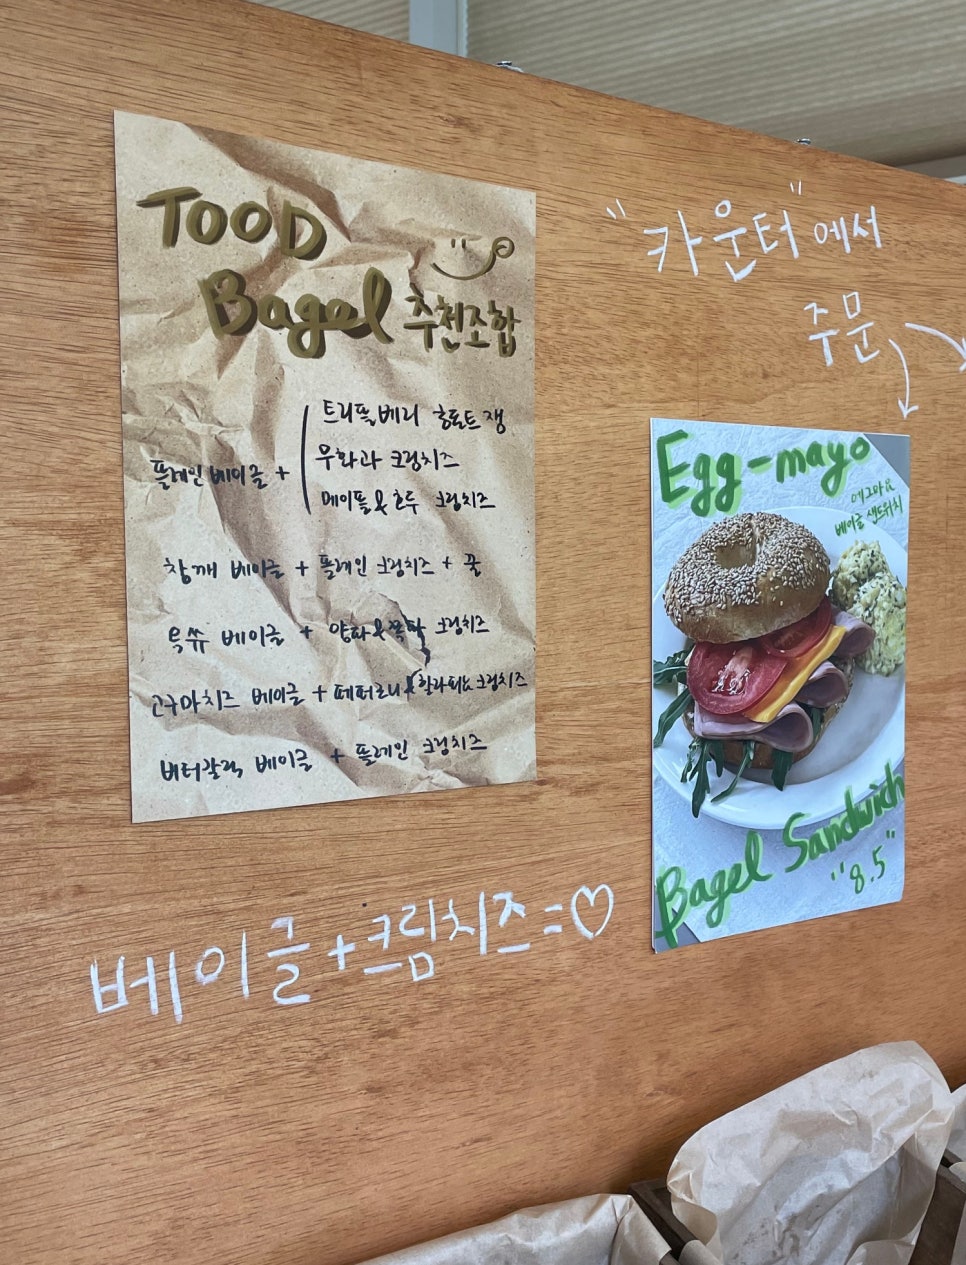 TOOD
Bagel 추천조합
플레인 베이글 +
트리플베리 홀루트 잼
무화과 크림치즈
메이플&호두 크림치즈
참깨 베이글 + 플레인 크림치즈 + 꿀
먹쓔 베이글 + 양파&쪽파 크림치즈
고구마치즈 베이글 + 페퍼로니&할라피뇨 크림치즈
버터갈릭 베이글 + 플레인 크림치즈
베이글+크림치즈=♡
"카운터"에서
주문
Egg-mayo
에그마요
베이글 샌드위치
Bagel Sandwich
"8.5"